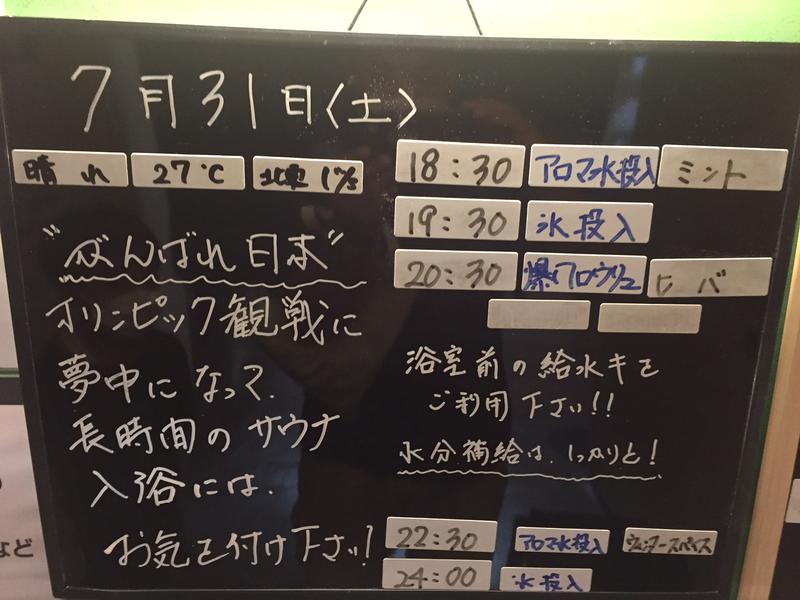 7月31日〈土〉
晴れ 27℃ 北東 1㎧
"がんばれ日本"
オリンピック観戦に
夢中になって、
長時間のサウナ
入浴には、
お気を付け下さい!
18:30 アロマ水投入 ミント
19:30 氷投入
20:30 爆ロウリュ ヒバ
浴室前の給水キを
ご利用下さい!!
水分補給は、しっかりと!
22:30 アロマ氷投入 ウィンタースパイス
24:00 氷投入
など